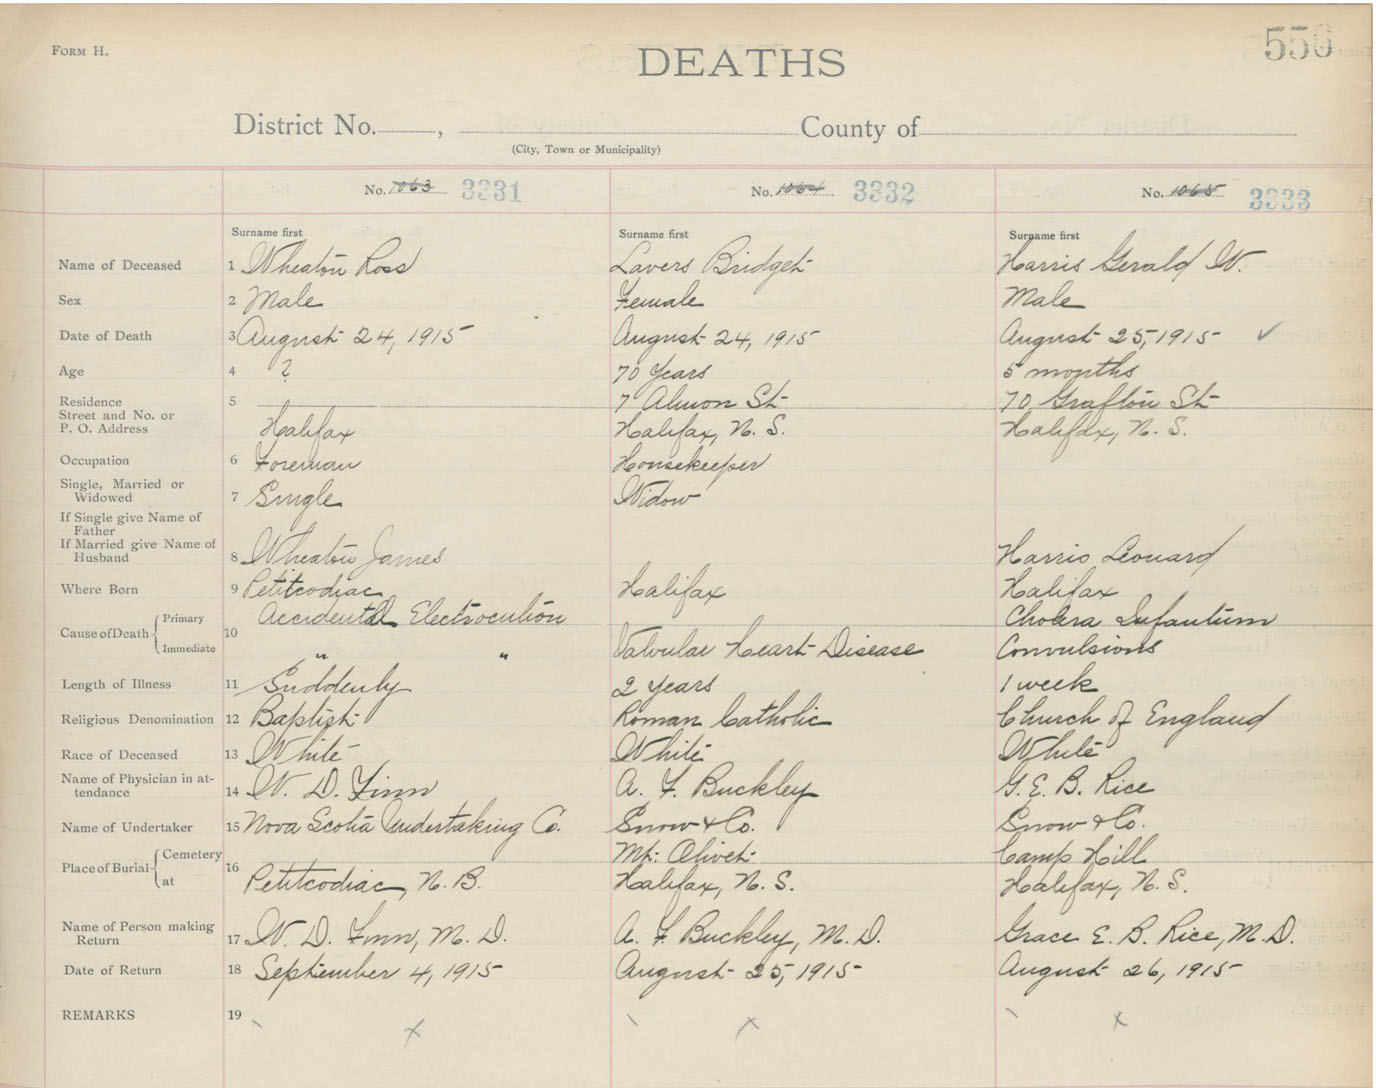 FORM H.
556
DEATHS
District No. , County of
(City, Town or Municipality)
No. 1063 3331 No. 1064 3332 No. 1065 3333
Surname first Surname first Surname first
Name of Deceased 1 Wheaton Ross Lavers Bridget Harris Gerald W.
Sex 2 Male Female Male
Date of Death 3 August 24, 1915 August 24, 1915 August 25, 1915 ✓
Age 4 ? 70 Years 5 months
Residence 5 7 Almon St 70 Grafton St
Street and No. or
P. O. Address Halifax Halifax, N. S. Halifax, N. S.
Occupation 6 Foreman Housekeeper
Single, Married or
Widowed 7 Single Widow
If Single give Name of
Father
If Married give Name of
Husband 8 Wheaton James Harris Leonard
Where Born 9 Petitcodiac Halifax Halifax
Cause of Death Primary 10 Accidental Electrocution Cholera Infantum
Immediate " " Valvular Heart Disease Convulsions
Length of Illness 11 Suddenly 2 years 1 week
Religious Denomination 12 Baptist Roman Catholic Church of England
Race of Deceased 13 White White White
Name of Physician in at-
tendance 14 W. D. Finn A. F. Buckley G. E. B. Rice
Name of Undertaker 15 Nova Scotia Undertaking Co. Snow & Co. Snow & Co.
Place of Burial Cemetery 16 Mt. Olivet Camp Hill
at Petitcodiac, N. B. Halifax, N. S. Halifax, N. S.
Name of Person making
Return 17 W. D. Finn, M. D. A. F. Buckley, M. D. Grace E. B. Rice, M. D.
Date of Return 18 September 4, 1915 August 25, 1915 August 26, 1915
REMARKS 19 x x x